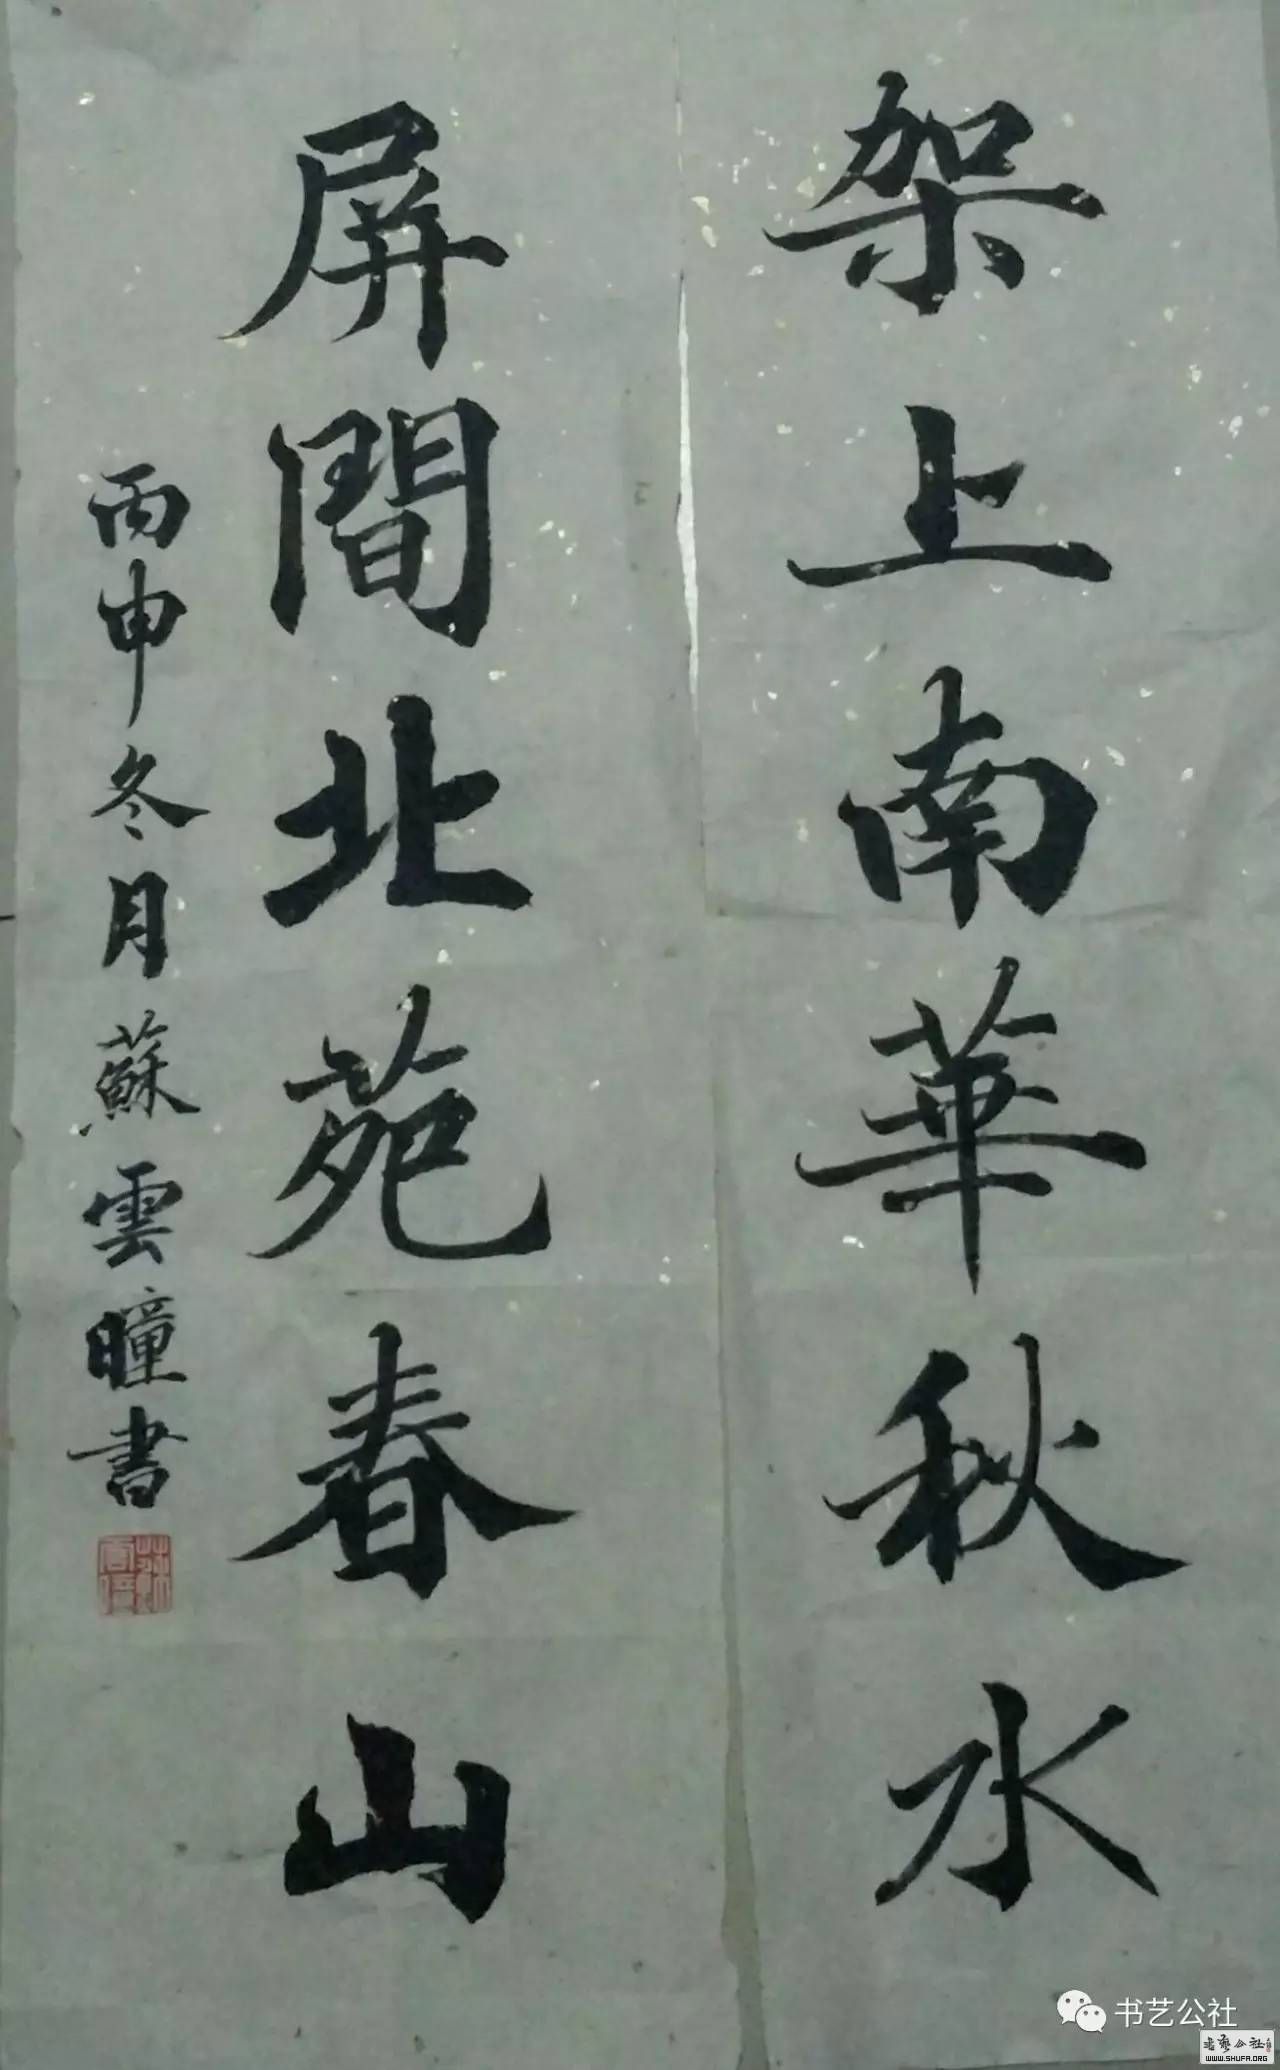 架上南華秋水
屏間北苑春山
丙申冬月蘇雲瞳書
书艺公社
书艺公社
WWW.SHUFA.ORG